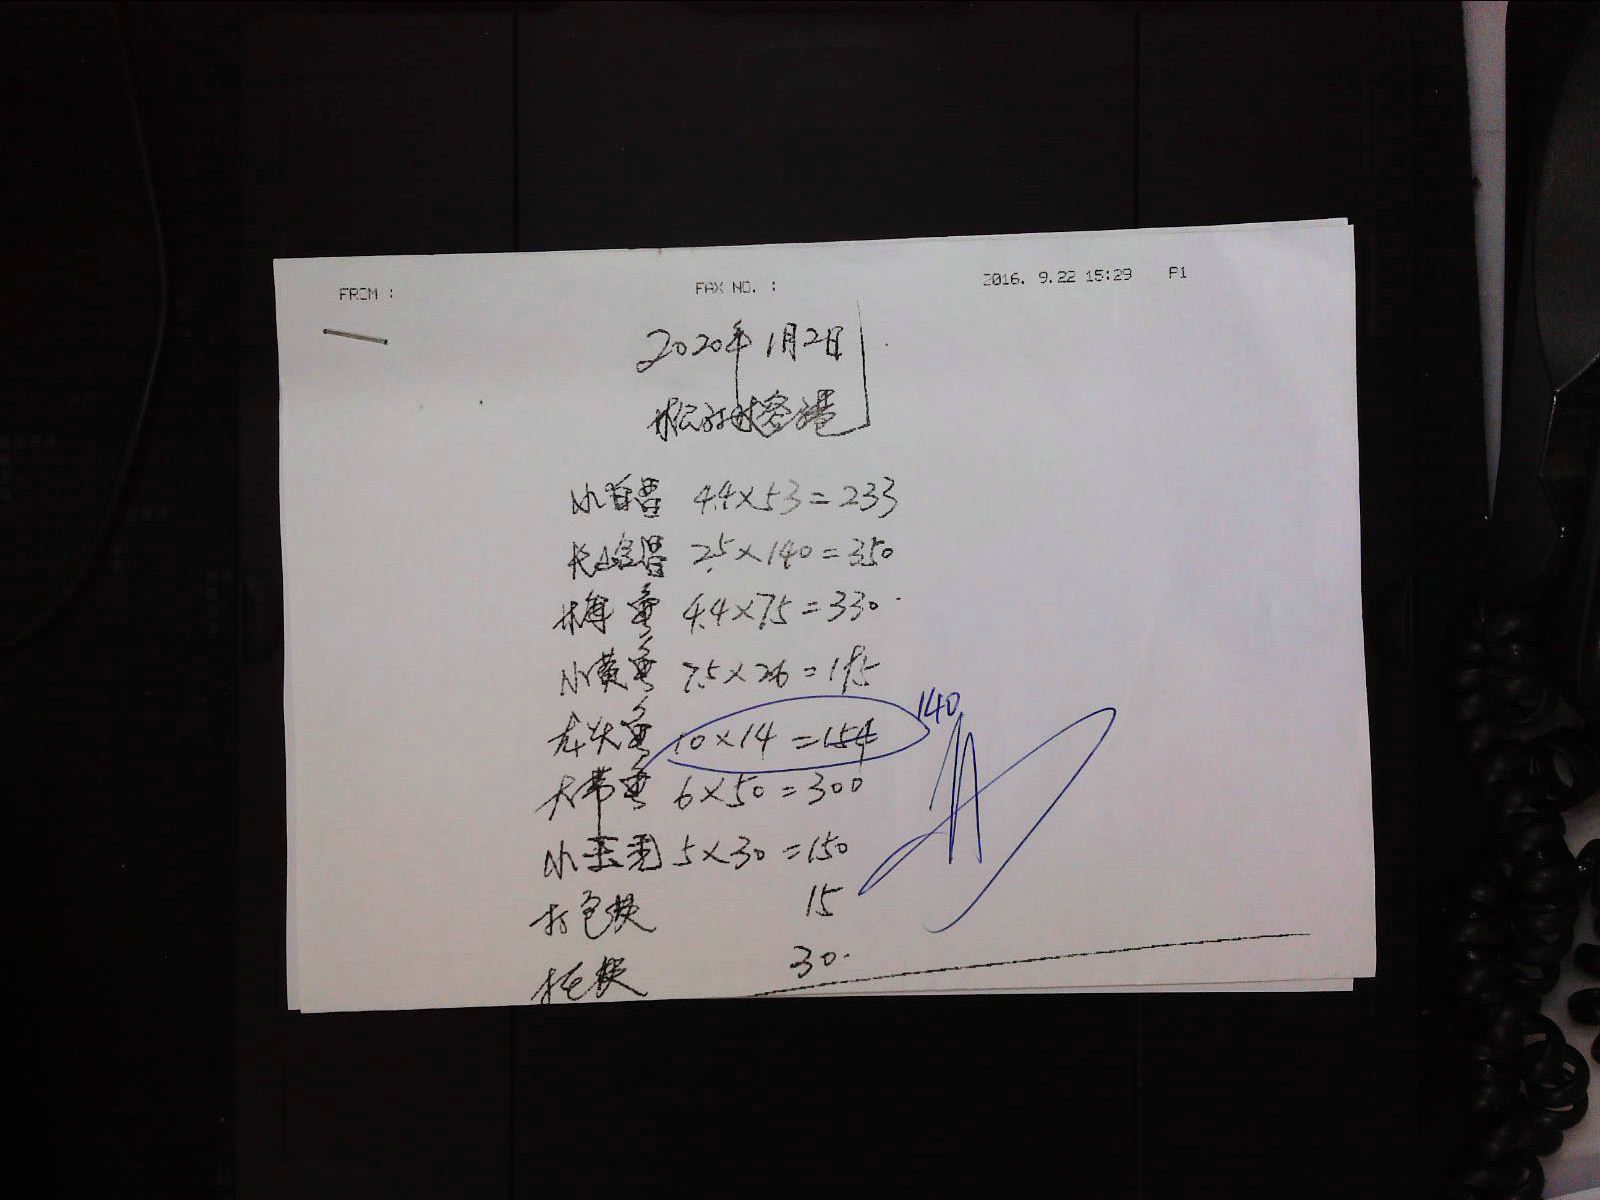 FROM : FAX NO. : 2016. 9.22 15:29 P1
2020年1月2日
小白鲳 4.4×53=233
长 鲳 2.5×140=350
梅鱼 4.4×75=330
小黄鱼 7.5×26=195
龙头鱼 10×14=154 140
大带鱼 6×50=300
小玉秃 5×30=150
打包费 15
托费 30